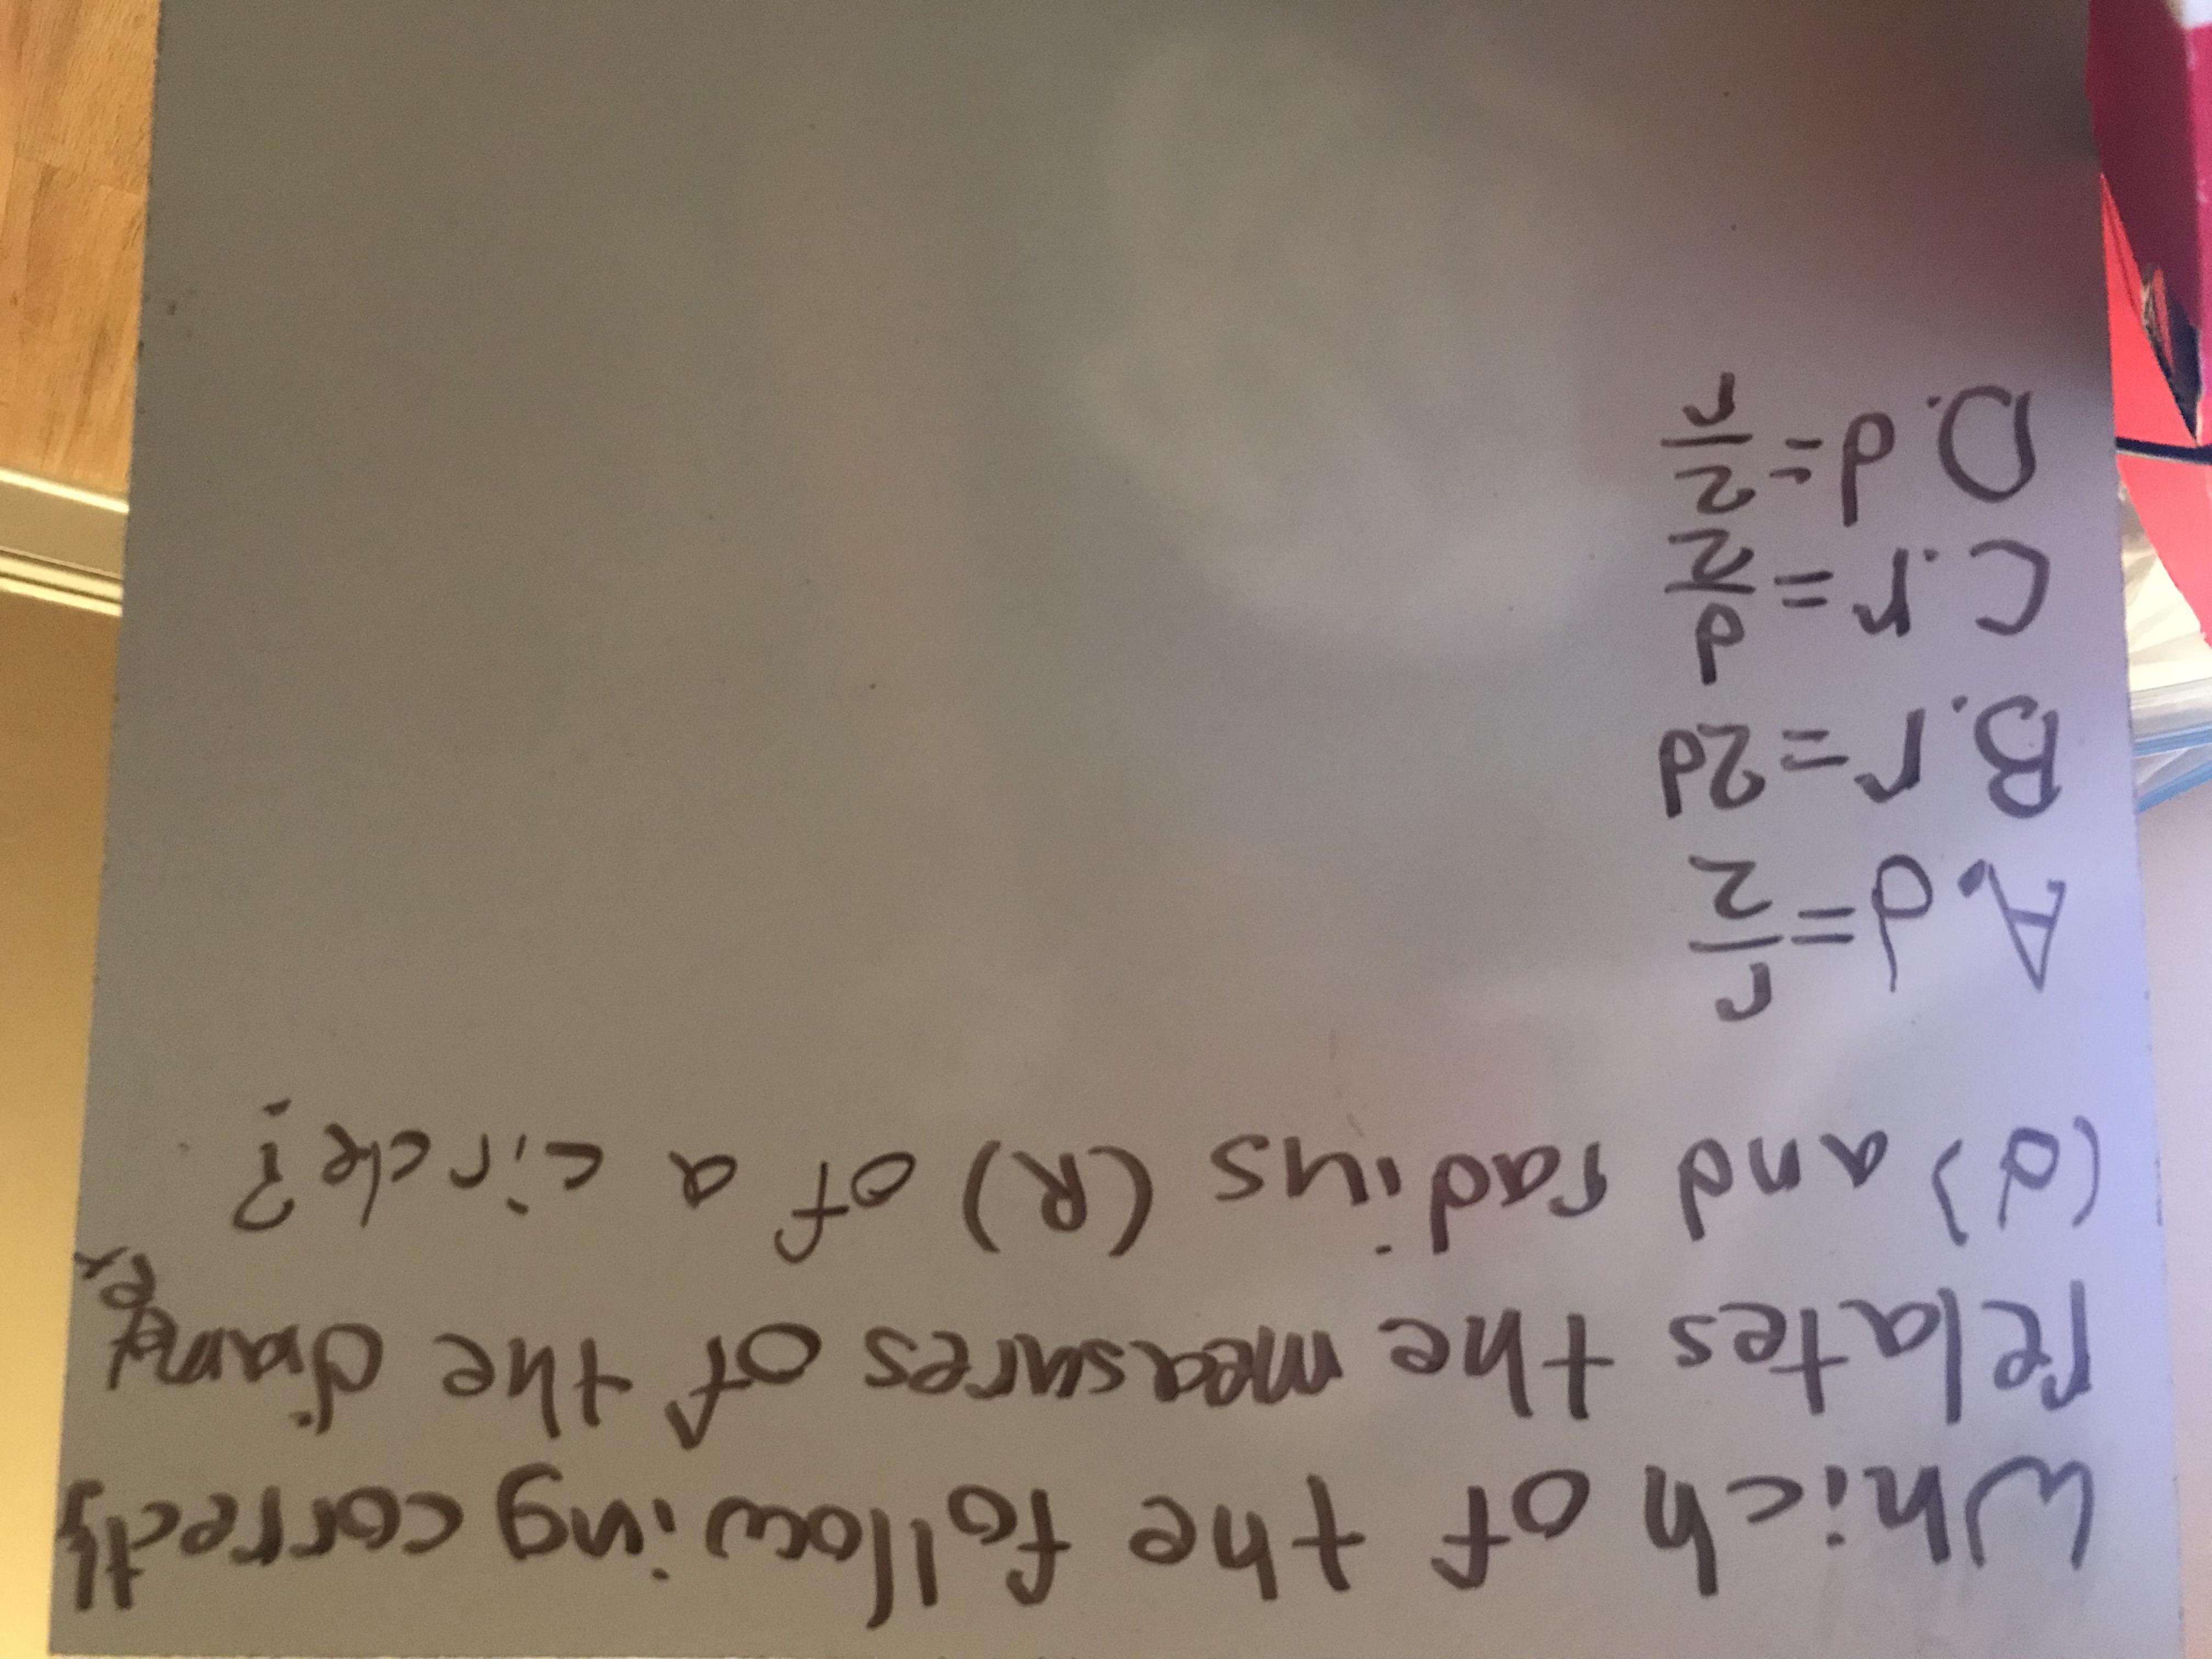 Which of the following correctly
relates the measures of the diameter
(d) and radius (R) of a circle?
A. d = r/2
B. r = 2d
C. r = d/2
D. d = 2/r